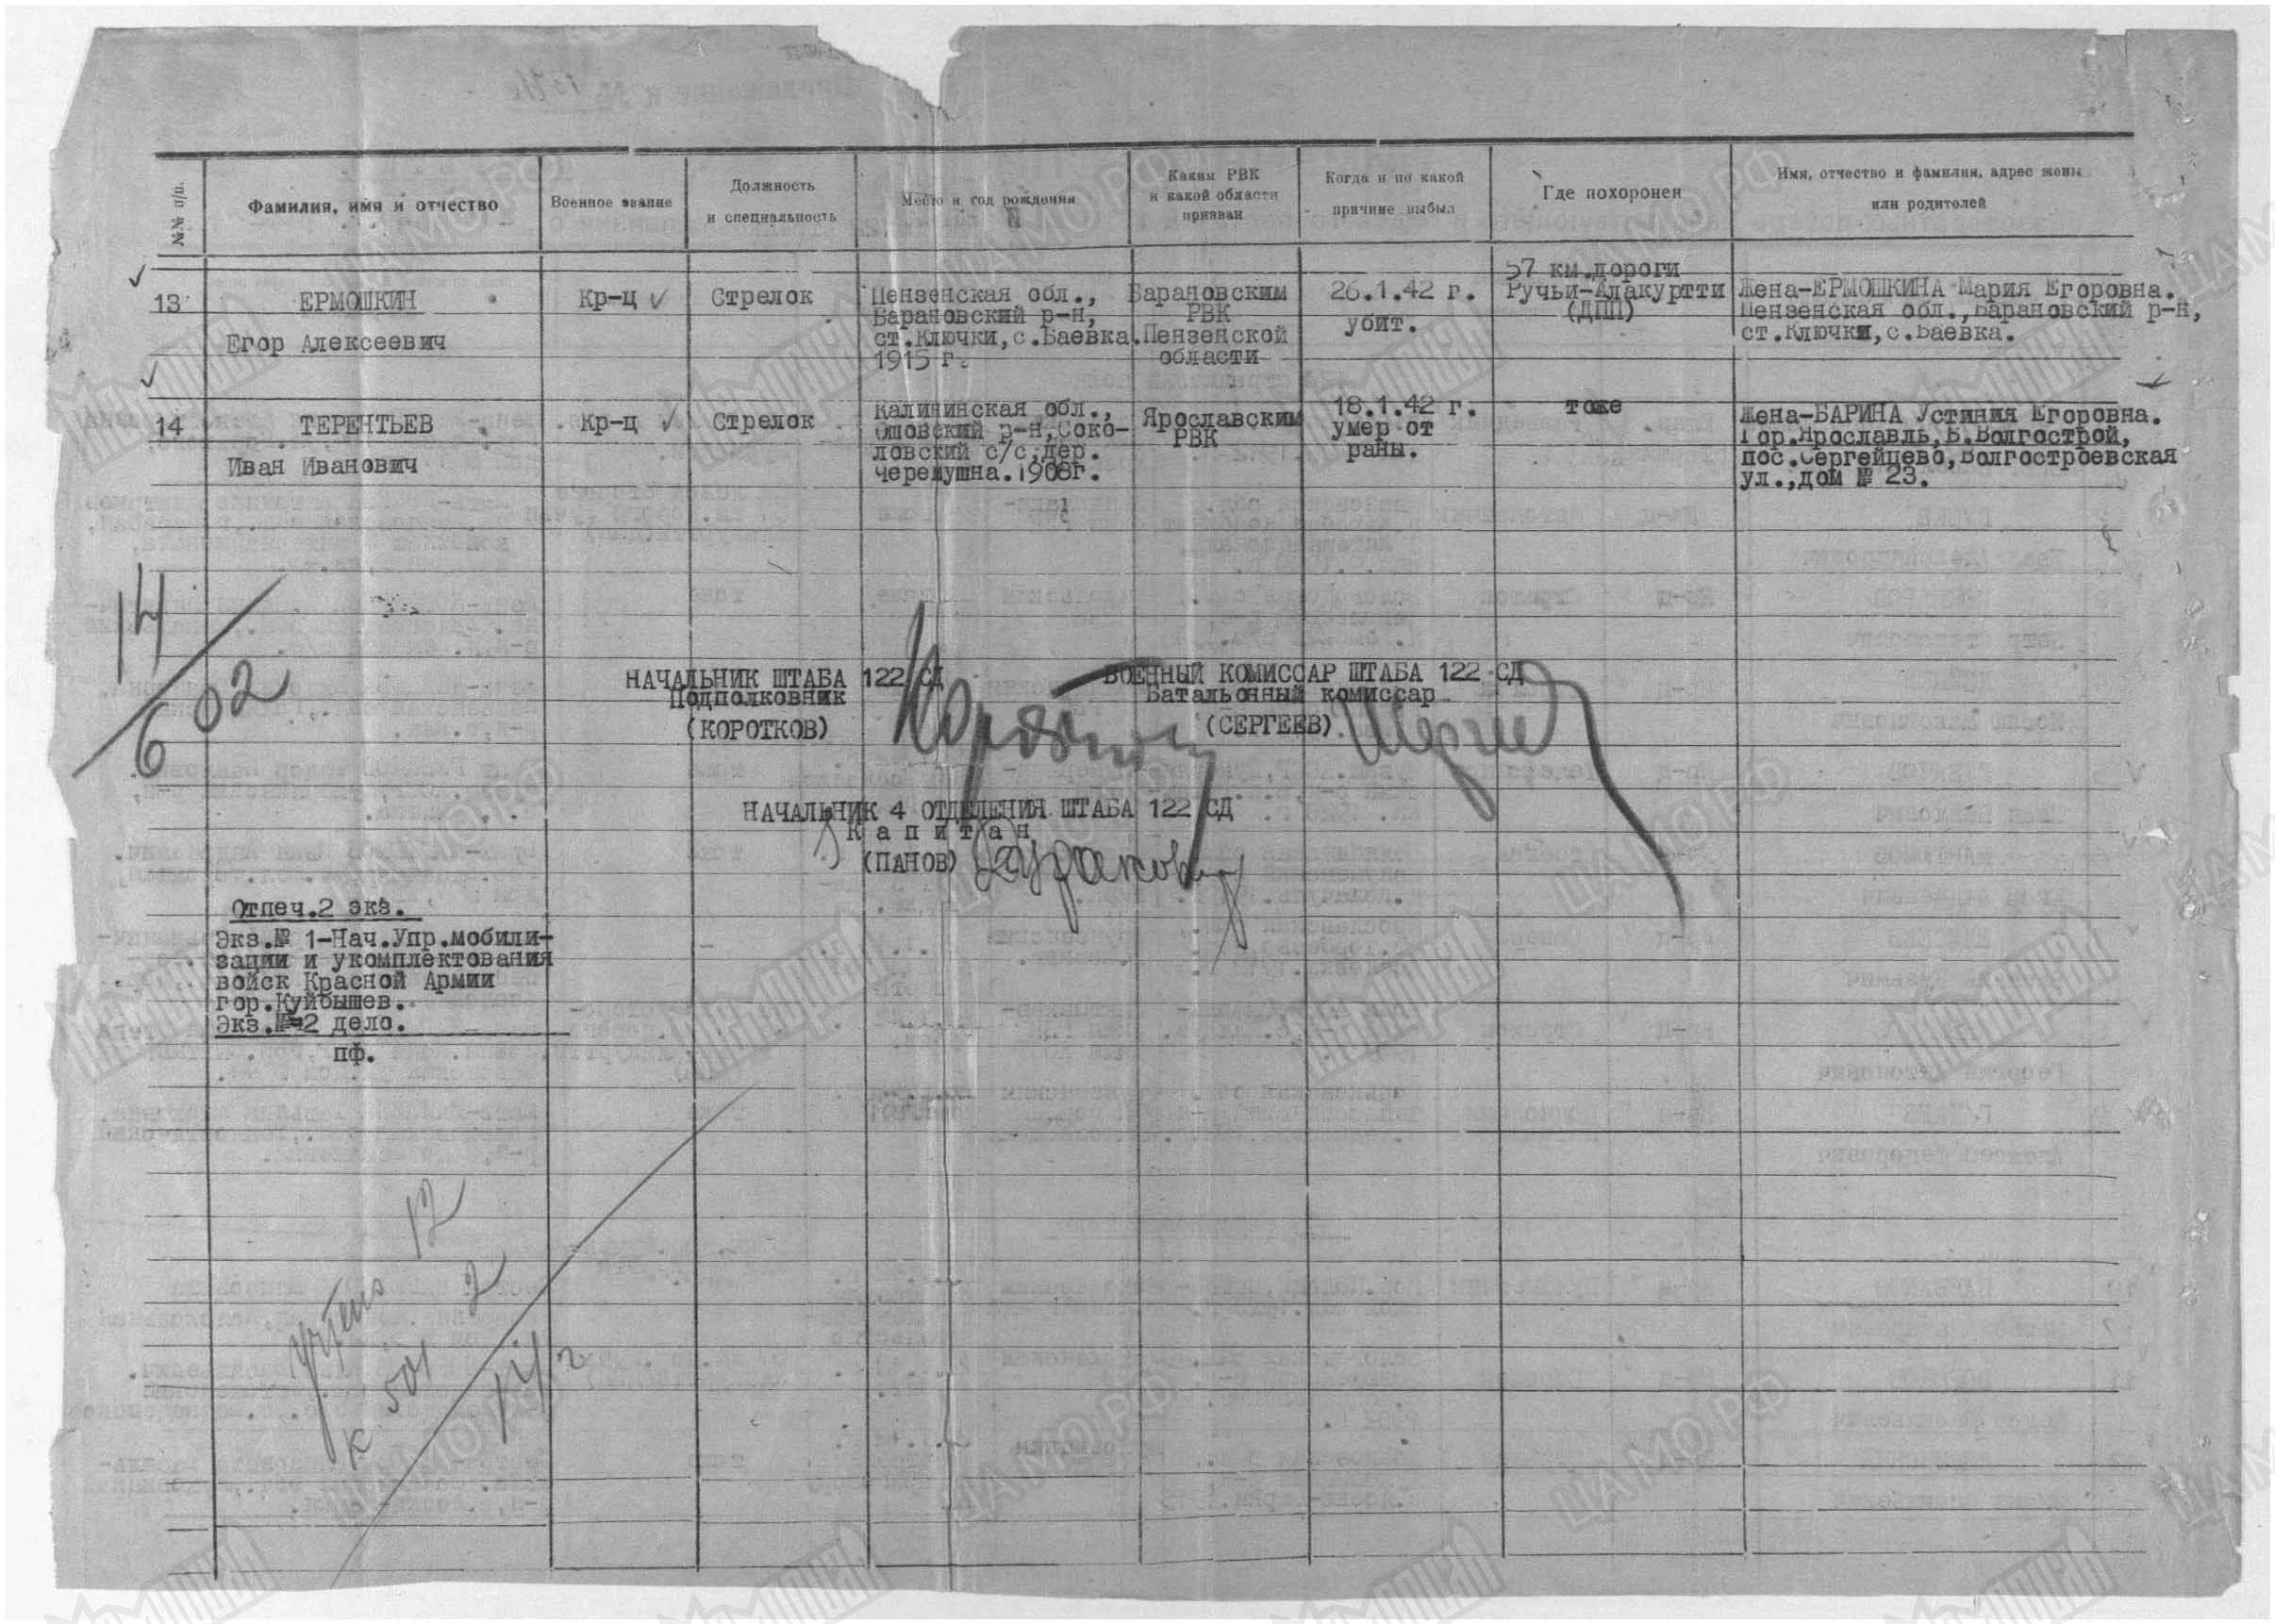 №№ п/п.
Фамилия, имя и отчество
Военное звание
Должность
и специальность
Место и год рождения
Каким РВК
и какой области
призван
Когда и по какой
причине выбыл
Где похоронен
Имя, отчество и фамилия, адрес жены
или родителей
13
ЕРМОШКИН
Егор Алексеевич
Кр-ц
Стрелок
Пензенская обл.,
Барановский р-н,
ст.Ключки,с.Баевка.
1915 г.
Барановским
РВК
Пензенской
области
26.1.42 г.
убит.
57 км.дороги
Ручьи-Алакуртти
(ДПП)
Жена-ЕРМОШКИНА Мария Егоровна.
Пензенская обл.,Барановский р-н,
ст.Ключки,с.Баевка.
14
ТЕРЕНТЬЕВ
Иван Иванович
Кр-ц
Стрелок
Калининская обл.,
Ошовский р-н,Соко-
ловский с/с,дер.
черемушна.1908г.
Ярославским
РВК
18.1.42 г.
умер от
раны.
тоже
Жена-БАРИНА Устиния Егоровна.
Гор.Ярославль,Б.Волгострой,
пос.Сергейцево,Волгостроевская
ул.,дом № 23.
14
602
НАЧАЛЬНИК ШТАБА 122 СД
Подполковник
(КОРОТКОВ)
ВОЕННЫЙ КОМИССАР ШТАБА 122 СД
Батальонный комиссар
(СЕРГЕЕВ)
НАЧАЛЬНИК 4 ОТДЕЛЕНИЯ ШТАБА 122 СД
Капитан
(ПАНОВ)
Отпеч.2 экз.
Экз.№ 1-Нач.Упр.мобили-
зации и укомплектования
войск Красной Армии
гор.Куйбышев.
Экз.№ 2 дело.
пф.
учтено 12
к 501 2
Мемориал
ЦАМО РФ